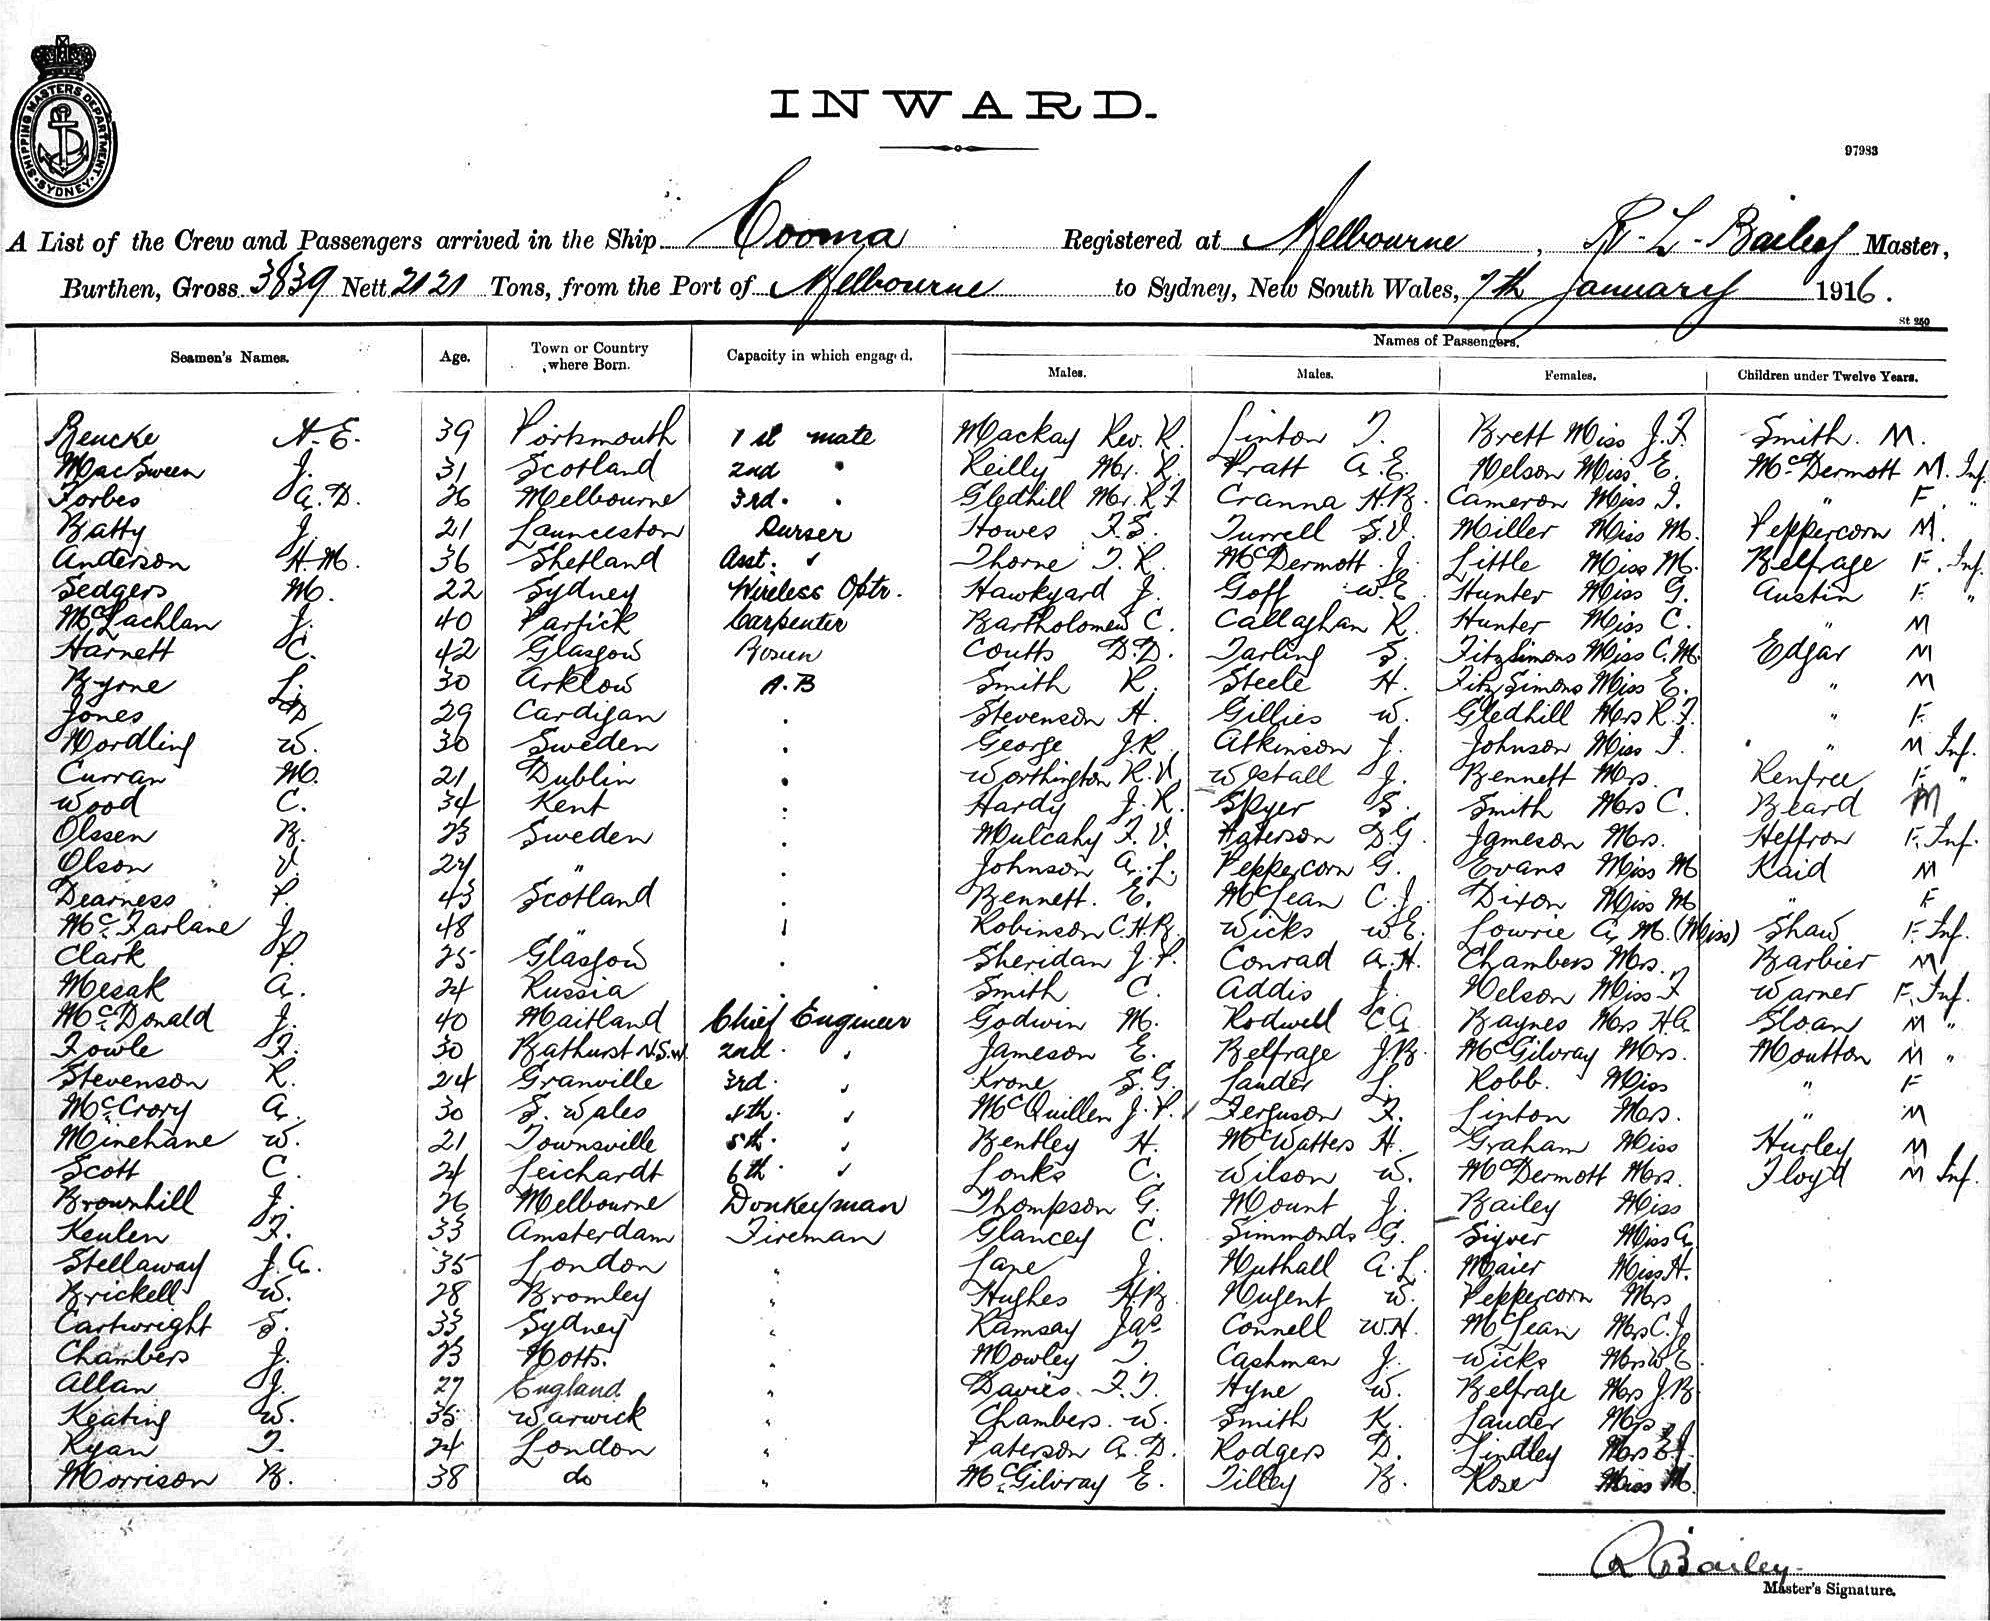 SHIPPING MASTERS DEPARTMENT. SYDNEY.
INWARD.
97983
A List of the Crew and Passengers arrived in the Ship Cooma Registered at Melbourne, R. L. Bailey Master,
Burthen, Gross 3839 Nett 2121 Tons, from the Port of Melbourne to Sydney, New South Wales, 7th January 1916.
St 250
Seamen's Names. Age. Town or Country where Born. Capacity in which engaged. Names of Passengers.
Males. Males. Females. Children under Twelve Years.
Rencke A. E. 39 Portsmouth 1st mate Mackay Rev. R. Linton T. Brett Miss J. F. Smith. M.
MacSween J. 31 Scotland 2nd " Reilly Mr. R. Pratt A. E. Nelson Miss E. McDermott M. Inf.
Forbes A. D. 26 Melbourne 3rd. " Gledhill Mr. R F Cranna H. B. Cameron Miss I. " F. "
Batty J. 21 Launceston Purser Howes F. S. Turrell S. V. Miller Miss M. Peppercorn M.
Anderson H. M. 36 Shetland Asst. " Thorne T. R. McDermott J. Little Miss M. Belfrage F. Inf.
Sedgers M. 22 Sydney Wireless Optr. Hawkyard J. Goff W. E. Hunter Miss G. Austin F. "
McLachlan J. 40 Partick Carpenter Bartholomew C. Callaghan R. Hunter Miss C. " M
Harnett C. 42 Glasgow Bosun Coutts D. D. Tarling S. Fitzsimons Miss C. M. Edgar M
Byrne L. 30 Arklow A. B Smith R. Steele H. FitzSimons Miss E. " M
Jones D 29 Cardigan . Stevenson H. Gillies W. Gledhill Mrs R. F. " F.
Nordling W. 30 Sweden . George J. R. Atkinson J. Johnson Miss I. " M Inf.
Curran M. 21 Dublin . Worthington R. V. Westall J. Bennett Mrs. Renfree F. "
Wood C. 34 Kent . Hardy J. R. Spyer S. Smith Mrs C. Beard M
Olssen B. 23 Sweden . Mulcahy F. V. Paterson D. G. Jameson Mrs. Heffron F. Inf.
Olson V. 24 " . Johnson A. L. Peppercorn G. Evans Miss M Kaid M
Dearness P. 43 Scotland . Bennett. E. McLean C. J. Dixon Miss M " F
McFarlane J. 48 " . Robinson C. H. B. Wicks W. E. Lowrie A. M. (Miss) Shaw F. Inf.
Clark P. 25 Glasgow . Sheridan J. P. Conrad A. H. Chambers Mrs. Barbier M
Mesak A. 24 Russia . Smith C. Addis J. Nelson Miss F Warner F. Inf.
McDonald J. 40 Maitland Chief Engineer Godwin M. Rodwell C. A. Baynes Mrs H A Sloan M "
Fowle F. 30 Bathurst N.S.W. 2nd. " Jameson E. Belfrage J. B. McGilvray Mrs. Moutton M "
Stevenson R. 24 Granville 3rd. " Krone S. G. Lauder L. Robb. Miss " F
McCrory A. 30 S. Wales 4th. " McQuillen J. P. Ferguson F. Linton Mrs. " M
Minehane W. 21 Townsville 5th. " Bentley H. McWatters H. Graham Miss Hurley M
Scott C. 24 Leichardt 6th. " Lonks C. Wilson W. McDermott Mrs. Floyd M Inf.
Brownhill J. 26 Melbourne Donkeyman Thompson G. Mount J. Bailey Miss
Keulen F. 33 Amsterdam Fireman Glancey C. Simmonds G. Signer Miss A.
Stellaway J. A. 35 London " Lane J. Nuthall A. L. Maier Miss H.
Brickell W. 28 Bromley " Hughes H. B. Nugent W. Peppercorn Mrs
Cartwright S. 33 Sydney " Ramsay Jas Connell W. H. McLean Mrs C. J
Chambers J. 23 Notts. " Mowley T. Cashman J. Wicks Mrs W. E.
Allan J. 27 England " Davies. F. T. Hyne W. Belfrage Mrs J. B
Keating W. 35 Warwick " Chambers. W. Smith K. Lauder Mrs
Ryan T. 24 London " Paterson A. D. Rodgers D. Lindley Mrs E. J.
Morrison B. 38 do " McGilvray E. Tilley B. Rose Miss M.
R Bailey
Master's Signature.